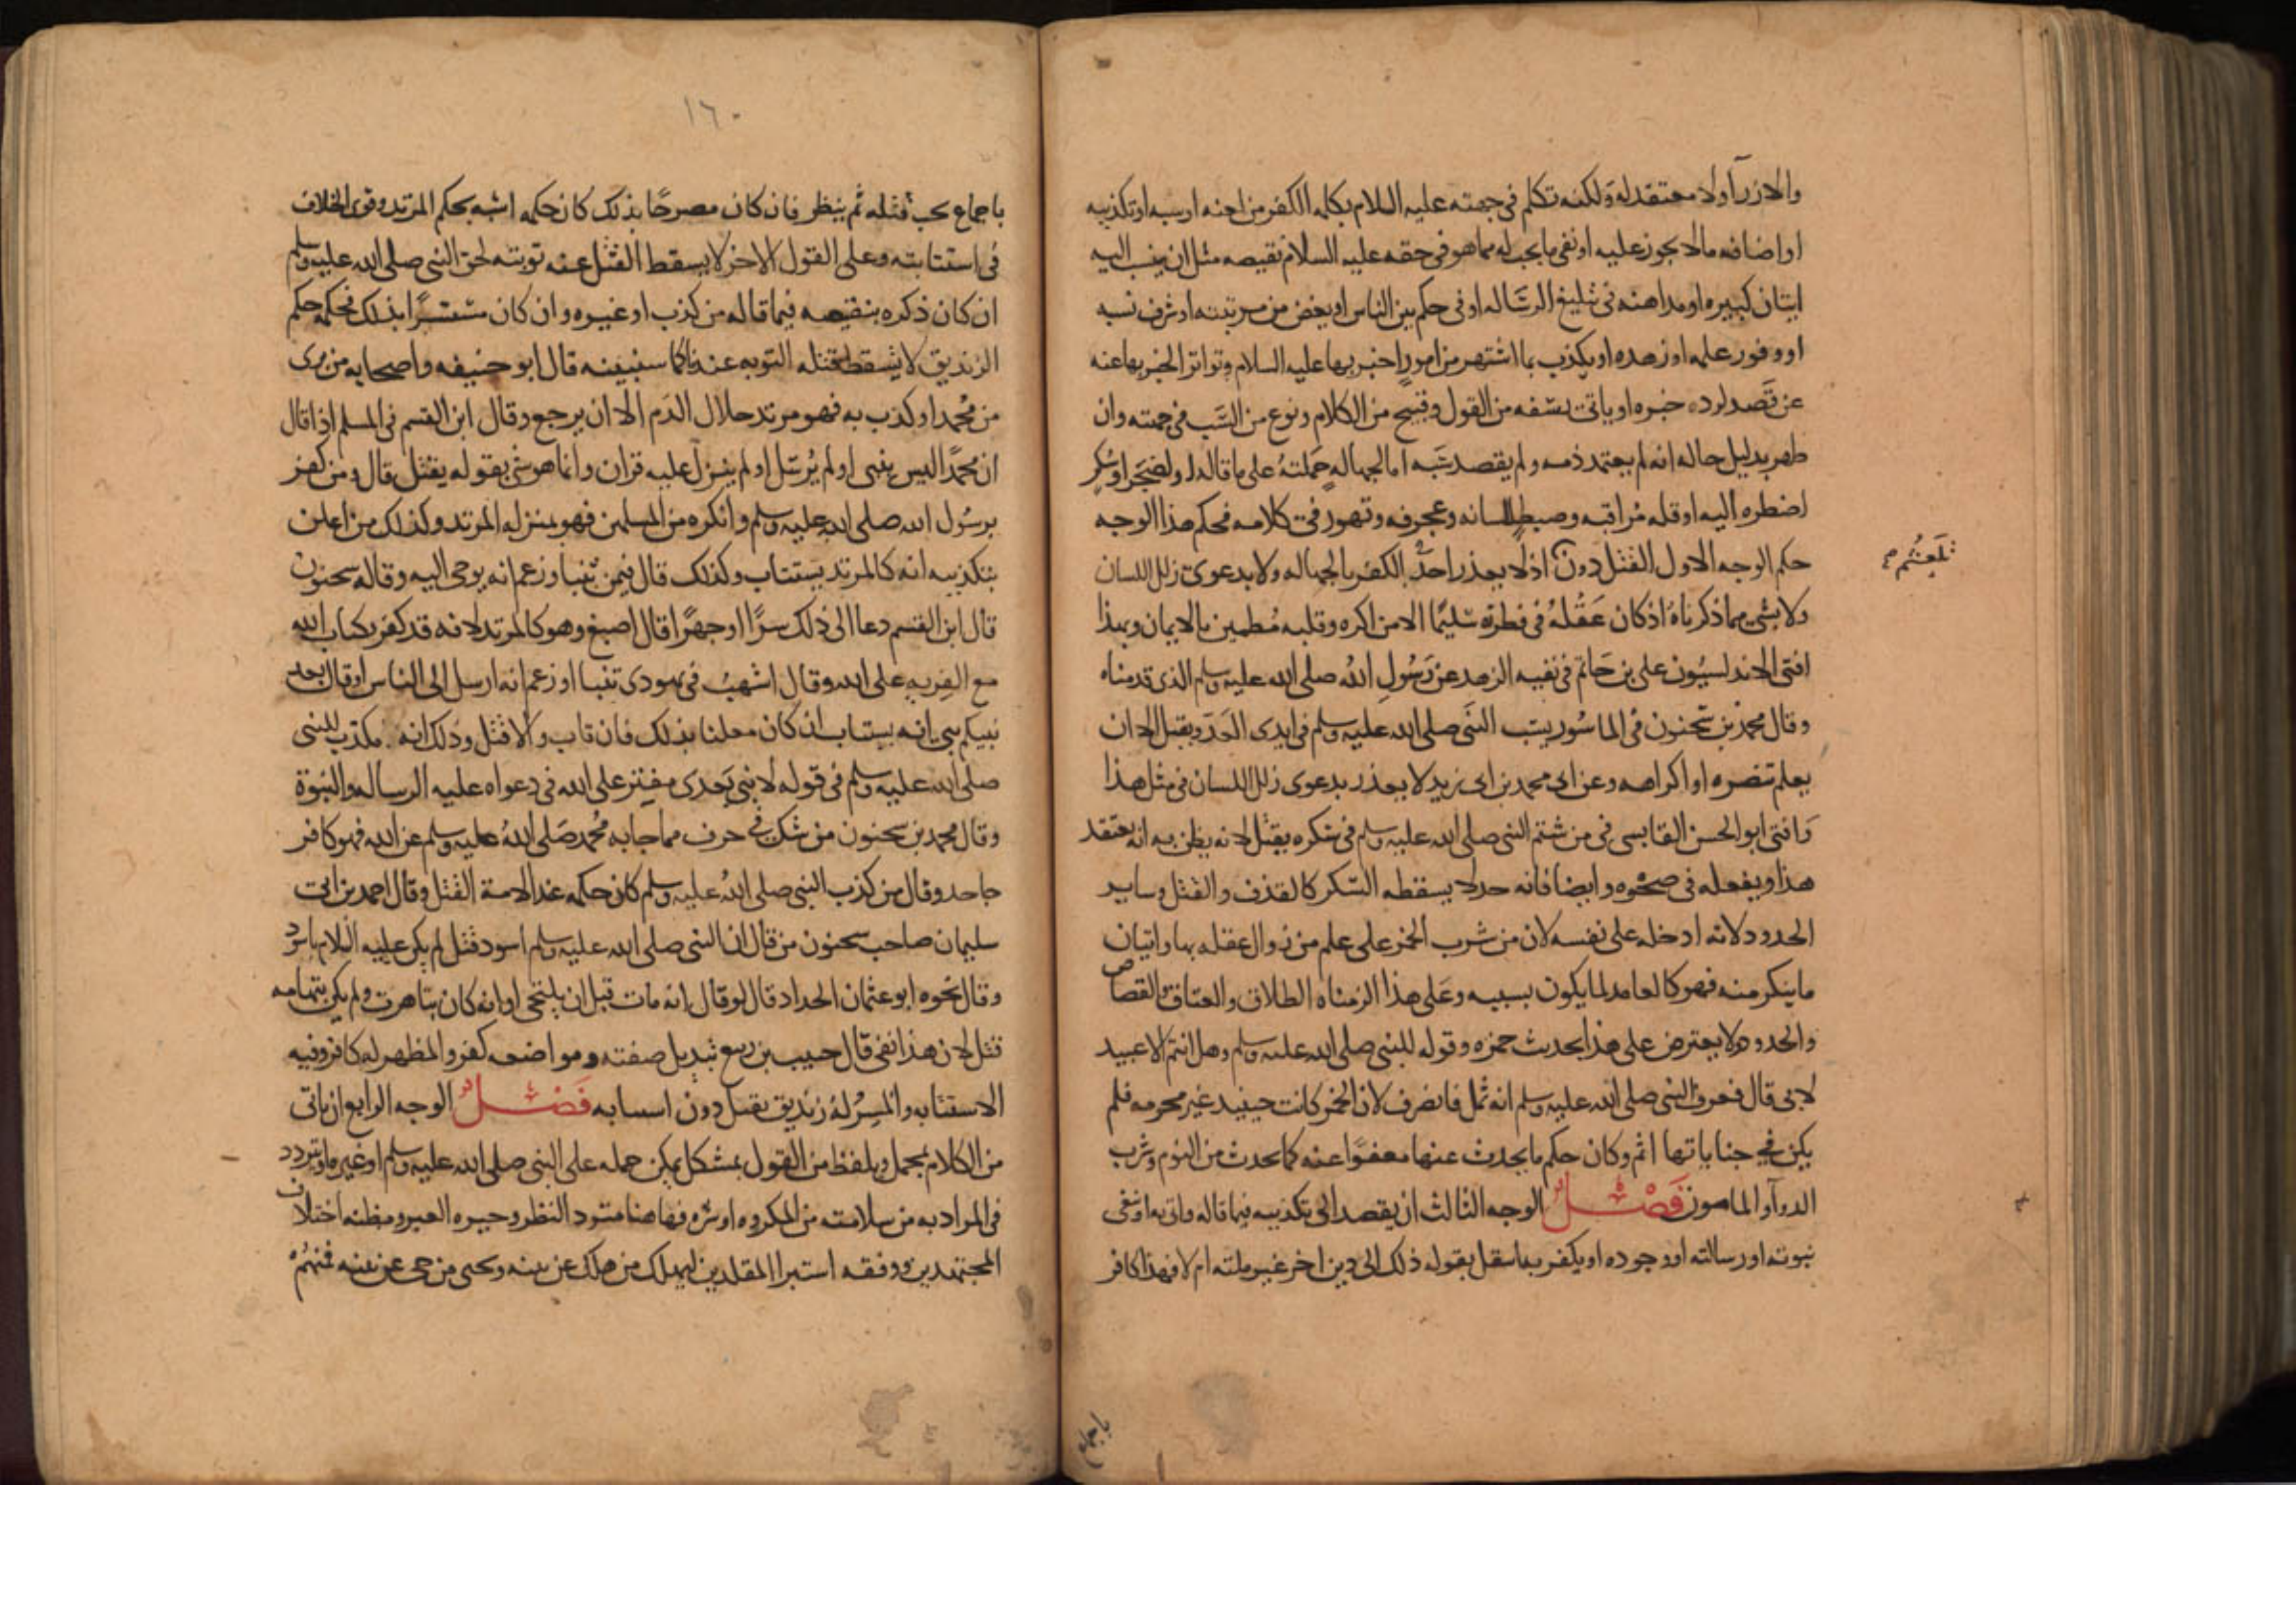 والازرآ ولا معتقد له ولكنه تكلم فى جهته عليه السلام بكلمه الكفر من لعنه او سبه او تكذيبه
او اضافه مالا يجوز عليه او نفى ما يجب له مما هو فى حقه عليه السلام نقيصه مثل ان ينسب اليه
اتيان كبيره او مداهنه فى تبليغ الرساله او فى حكم بين الناس او يغض من مرتبته او شرف نسبه
او وفور علمه او زهده او يكذب بما اشتهر من امور اخبر بها عليه السلام وتواتر الخبر بها عنه
عن قصد لرده خبره او ياتى بسفه من القول وقبيح من الكلام ونوع من السَّب فى جهته وان
ظهر بدليل حاله انه لم يعتمد ذمه ولم يقصد سَبه اما لجهالهٍ حَملتهُ على ما قاله او لضَجَر او سُكر
اضطره اليه او قله مُراقبه وضبطٍ للسانه وعجرفه وتهور فى كلامه فحكم هذا الوجه
حكم الوجه الاول القتل دون اذ لا يعذر احدٌ فى الكفر بالجهاله ولا بدعوى زلل اللسان
تلعثُم
ولا بشى مما ذكرناهُ اذ كان عَقْلهُ فى فطرته سَليمًا الا من اكره وقلبه مُطمين بالايمان وبهذا
افتى الاندلسيُون على بن حَاتم فى نفيه الزهد عن رَسُولِ اللهُ صلى الله عليه وسلم الذى قدمناه
وقال محمد بن سَحنون فى الماسُور يسَب النَبى صلى الله عليه وسلم فى ايدى العَدو يقتل الا ان
يعلم تنصره او اكراهه وعن ابى محمد بن ابى زيد لا يعذر بدعوى زلل اللسان فى مثل هذا
وَافتى ابو الحسن القابسى فى من شتم النبى صلى الله عليه وسلم فى سكره يقتل لانه يظن به انه يعتقد
هذا ويفعله فى صحْوه وايضا فانه حد لا يسقطه السّكر كالقذف والقتل وساير
الحدود لانه ادخله على نفسه لان من شرب الخمر على علم من زوال عقله بها واتيان
ما ينكر منه فهو كالعامد لما يكون بسببه وعَلى هذا الزمناه الطلاق والعتاق والقصاص
والحدود ولا يعترض على هذا بحديث حمزه وقوله للنبى صلى الله عليه وسلم وهل انتم الا عبيد
لابى قال فعرف النبى صلى الله عليه وسلم انه ثمل فانصرف لان الخمر كانت حينيد غير محرمه فلم
يكن فى جناياتها اثم وكان حكم ما يحدث عنها معفوًا عنه كما يحدث من النوم وشرب
الدوآ والمامون فَصْــل الوجه الثالث ان يقصد الى تكذيبه فيما قاله واتى به او نفى
نبوته او رسالته او وجوده او يكفر به انتقل بقوله ذلك الى دين اخر غير ملته ام لا فهذا كافر
١٦٠
باجماع يجب قتله ثم ينظر فان كان مصرحًا بذلك كان حكمه اشبه بحكم المرتد وقوى الخلاف
فى استتابته وعلى القول الاخر لا يسقط القتل عنه توبته لحق النبى صلى الله عليه وسلم
ان كان ذكره بنقيصه فيما قاله من كذب او غيره وان كان متستّرًا بذلك فحكمه حكم
الزنديق لا يسقط قتله التوبه عندنا كما سنبينه قال ابو حنيفه واصحابه من برى
من مُحمد او كذب به فهو مرتد حلال الدَم الا ان يرجع وقال ابن القسم فى المسلم اذا قال
ان محمّدًا ليس بنبى او لم يُرسَل او لم ينزل عليه قران وانما هو شى بقوله يقتل قال ومن كفر
برسُول الله صلى الله عليه وسلم وانكره من المسلمين فهو بمنزله المرتد وكذلك من اعلن
بتكذيبه انه كالمرتد يستتاب وكذلك قال فيمن تنبا وزعم انه يوحى اليه وقاله سحنون
قال ابن القسم دعا الى ذلك سرًا او جهرًا قال اصبغ وهو كالمرتد لانه قد كفر بكتاب الله
مع الفِريهِ على الله وقال اشهبُ فى يهودى تنبا او زعم انه ارسل الى الناس او قال بعد
نبيكم نبى انه يستتاب ان كان معلنا بذلك فان تاب والا قتل وذلك انه مكذب للنبى
صلى الله عليه وسلم فى قوله لا نبى بَعدى مفترٍ على الله فى دعواه عليه الرساله والنبوة
وقال محمد بن سحنون من شك فى حرف مما جا به مُحمد صَلى اللهُ عليه وسلم عن الله فهو كافر
جاحد وقال من كذب النبى صلى اللهُ عليه وسلم كان حكمه عند الامة القتل وقال احمد بن ابى
سليمان صاحب سحنون من قال ان النبى صلى الله عليه وسلم اسود قتل لم يكن عليه السلام باسود
وقال نحوه ابو عثمان الحداد قال لو قال انه مات قبل ان يلتحى او انه كان بتاهرت ولم يكن بتهامه
قتل لان هذا نفى قال حبيب بن ربيع تبديل صفته ومواضعه كفر والمظهر له كافر وفيه
الاستتابه والمسِرُ لهُ زنديق يقتل دون استتابه فَصْــل الوجه الرابع ان ياتى
من الكلام بمجمل ويلفظ من القول بمشكل يمكن حمله على النبى صلى الله عليه وسلم او غيره او يتردد
فى المراد به من سلامته من المكروه او شره فهاهنا متردد النظر وحيره العبر ومظنه اختلاف
المجتهدين ووقفه استبرا المقلدين ليهلك من هلك عن بينه ويحيى من حى عن بينه فمنهُمْ